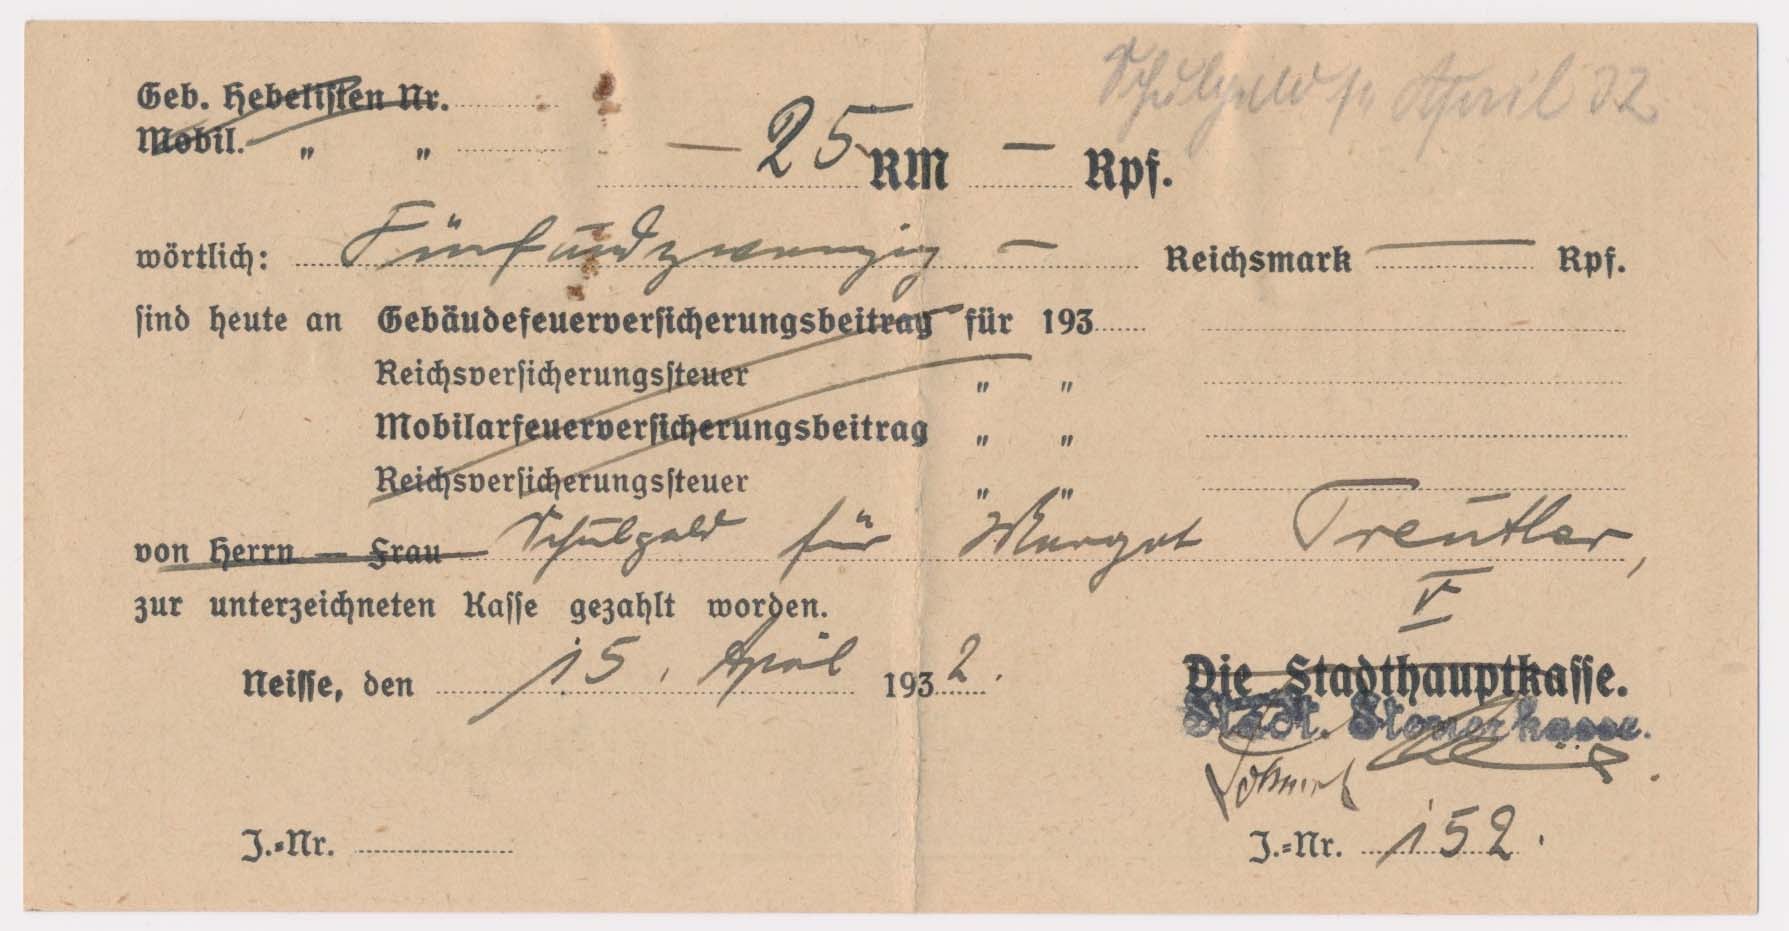 Schulgeld f. April 32
Geb. Hebelisten Nr.
Mobil. " "
— 25 RM — Rpf.
wörtlich: Fünfundzwanzig — Reichsmark — Rpf.
sind heute an Gebäudefeuerversicherungsbeitrag für 193
Reichsversicherungssteuer " "
Mobilarfeuerversicherungsbeitrag " "
Reichsversicherungssteuer " "
von Herrn — Frau Schulgeld für Margot Treutler,
V
zur unterzeichneten Kasse gezahlt worden.
Neisse, den 15. April 1932.
Die Stadthauptkasse.
Städt. Steuerkasse.
J.-Nr.
J.-Nr. 152.